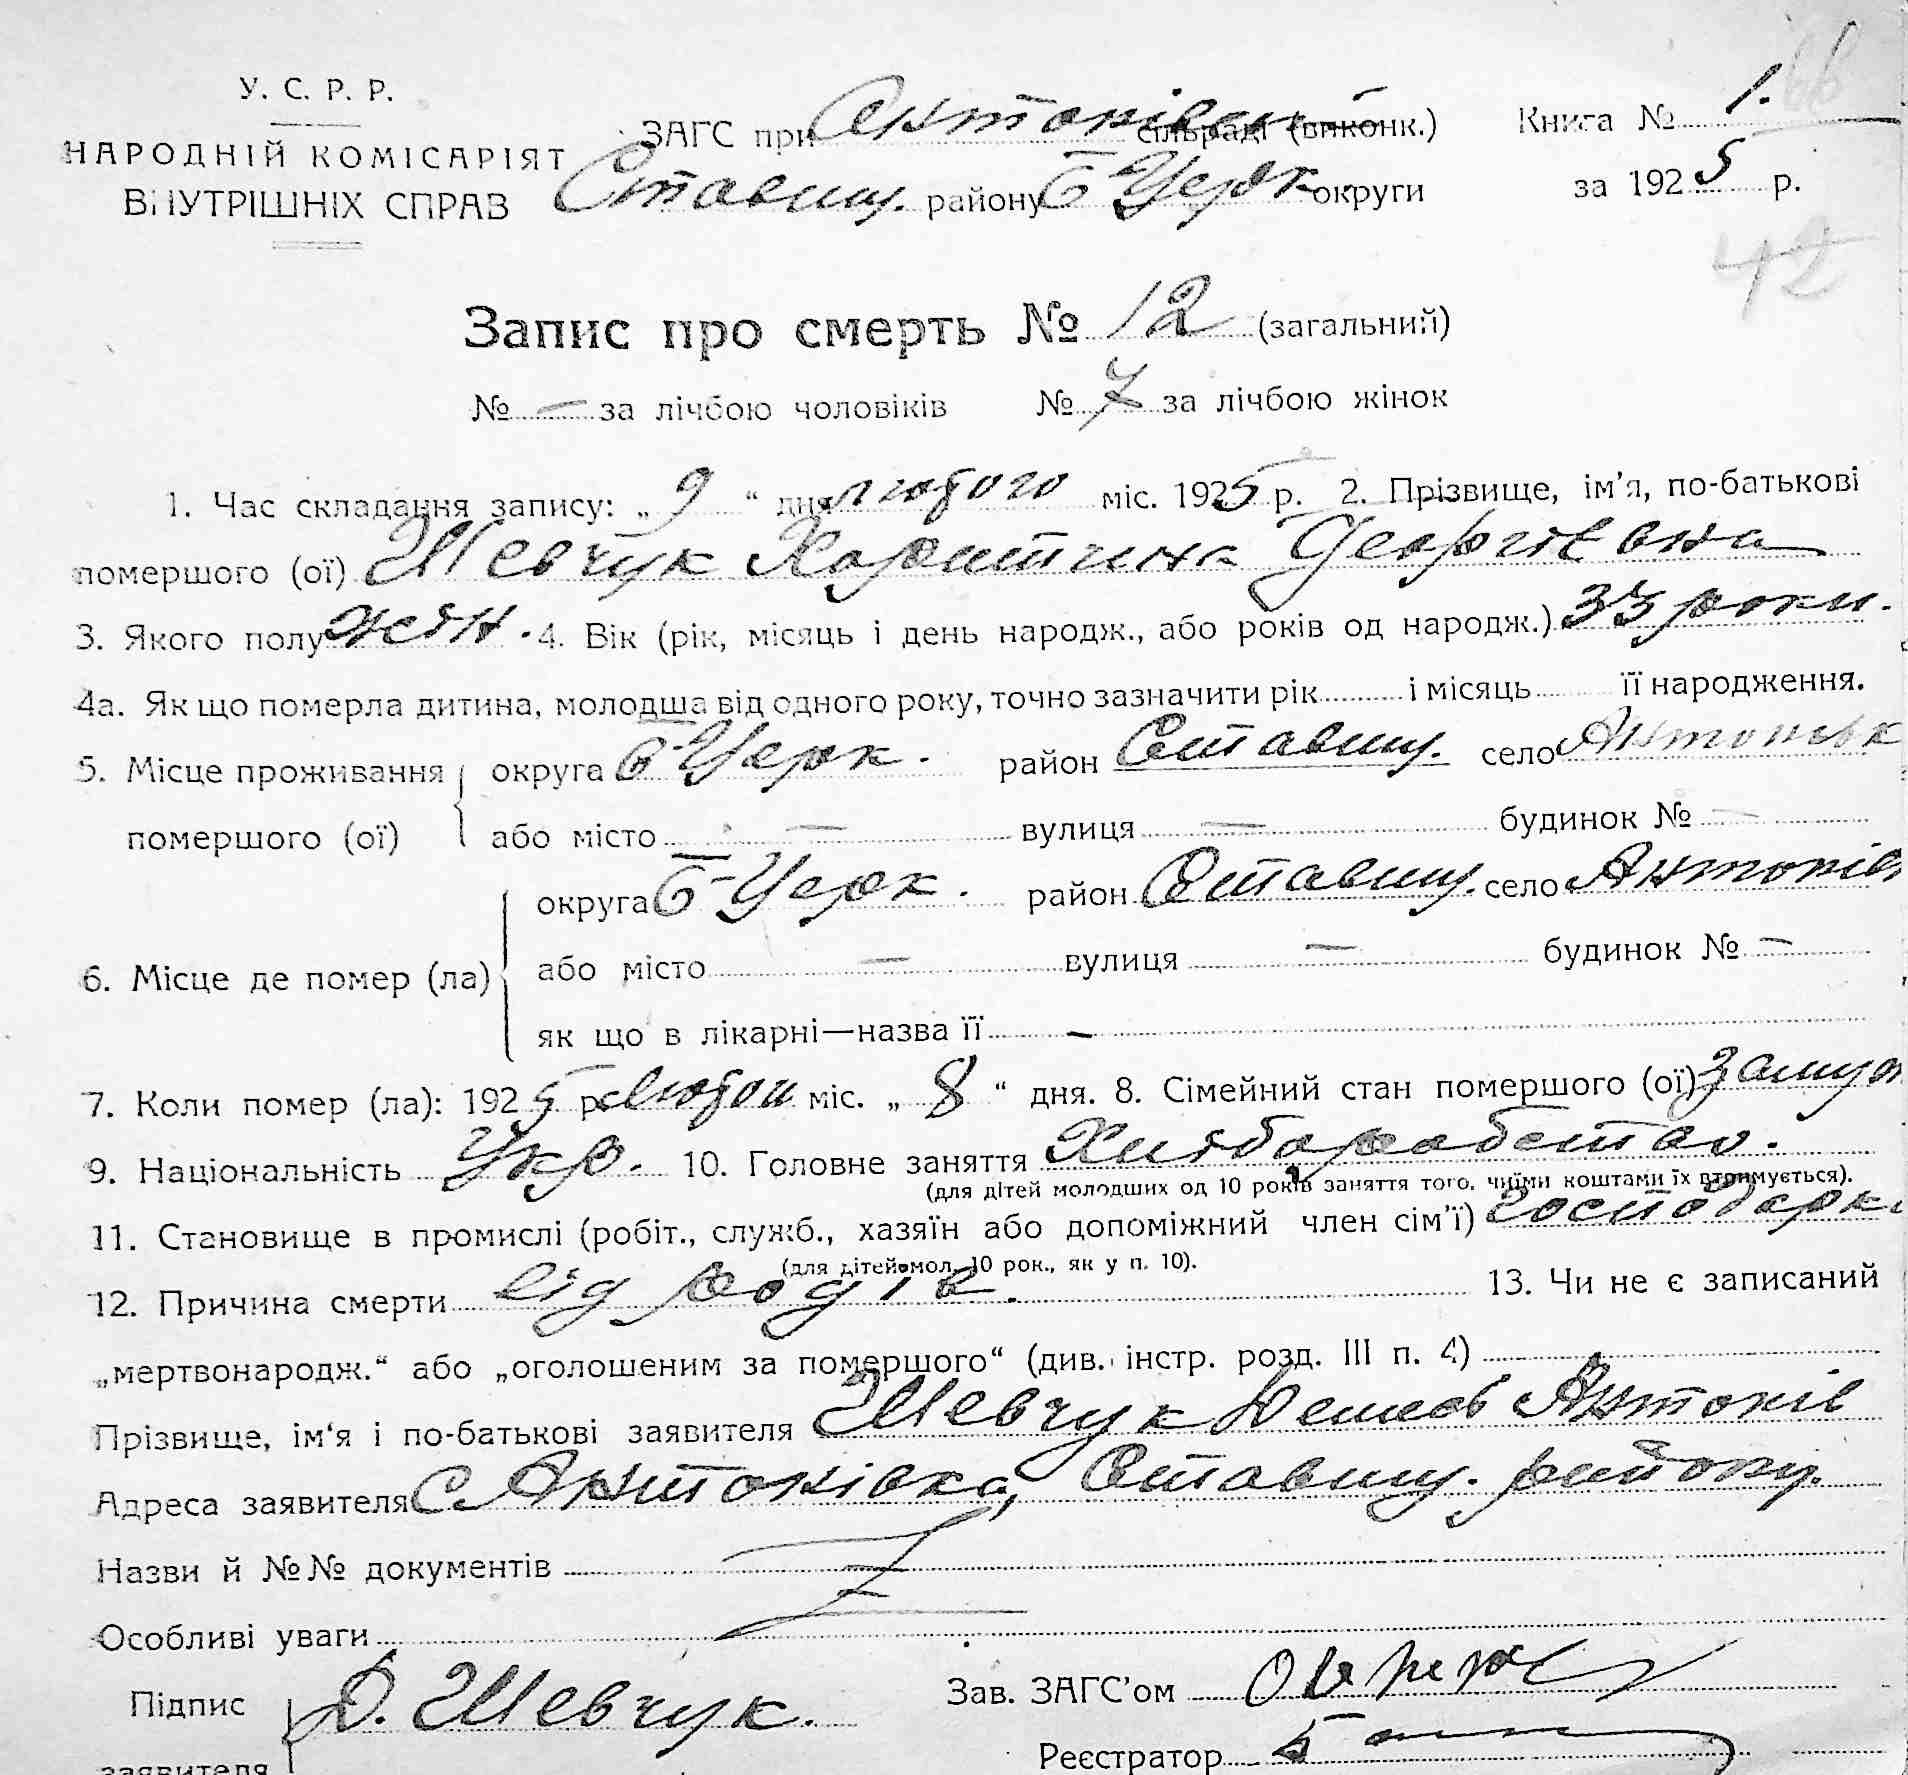 66
У. С. Р. Р.
НАРОДНІЙ КОМІСАРІЯТ
ВНУТРІШНІХ СПРАВ
ЗАГС при Антонівськ сільраді (виконк.)
Ставищ. району Б-Церк. округи
Книга № 1.
за 1925 р.
42
Запис про смерть № 12 (загальний)
№ — за лічбою чоловіків № 7 за лічбою жінок
1. Час складання запису: „ 9 “ дня лютого міс. 1925 р. 2. Прізвище, ім’я, по-батькові
помершого (ої) Шевчук Харитина Георгіевна
3. Якого полу жін. 4. Вік (рік, місяць і день народж., або років од народж.) 33 роки.
4а. Як що померла дитина, молодша від одного року, точно зазначити рік і місяць її народження.
5. Місце проживання округа Б-Церк. район Ставищ. село Антонівк
помершого (ої) або місто — вулиця — будинок № —
округа Б-Церк. район Ставищ. село Антонів
6. Місце де помер (ла) або місто — вулиця — будинок № —
як що в лікарні—назва її —
7. Коли помер (ла): 1925 р. міс. „ 8 “ дня. 8. Сімейний стан помершого (ої) замуж
9. Національність Укр. 10. Головне заняття Хліборобство.
(для дітей молодших од 10 років заняття того, чиїми коштами їх втримується).
11. Становище в промислі (робіт., служб., хазяїн або допоміжний член сім’ї) господарка
(для дітей мол. 10 рок., як у п. 10).
12. Причина смерти від родів. 13. Чи не є записаний
„мертвонародж.“ або „оголошеним за помершого“ (див. інстр. розд. III п. 4)
Прізвище, ім‘я і по-батькові заявителя Шевчук Антонів
Адреса заявителя с Антонівка, Ставищ. району.
Назви й №№ документів
Особливі уваги
Підпис Д. Шевчук. Зав. ЗАГС’ом
заявителя Реєстратор